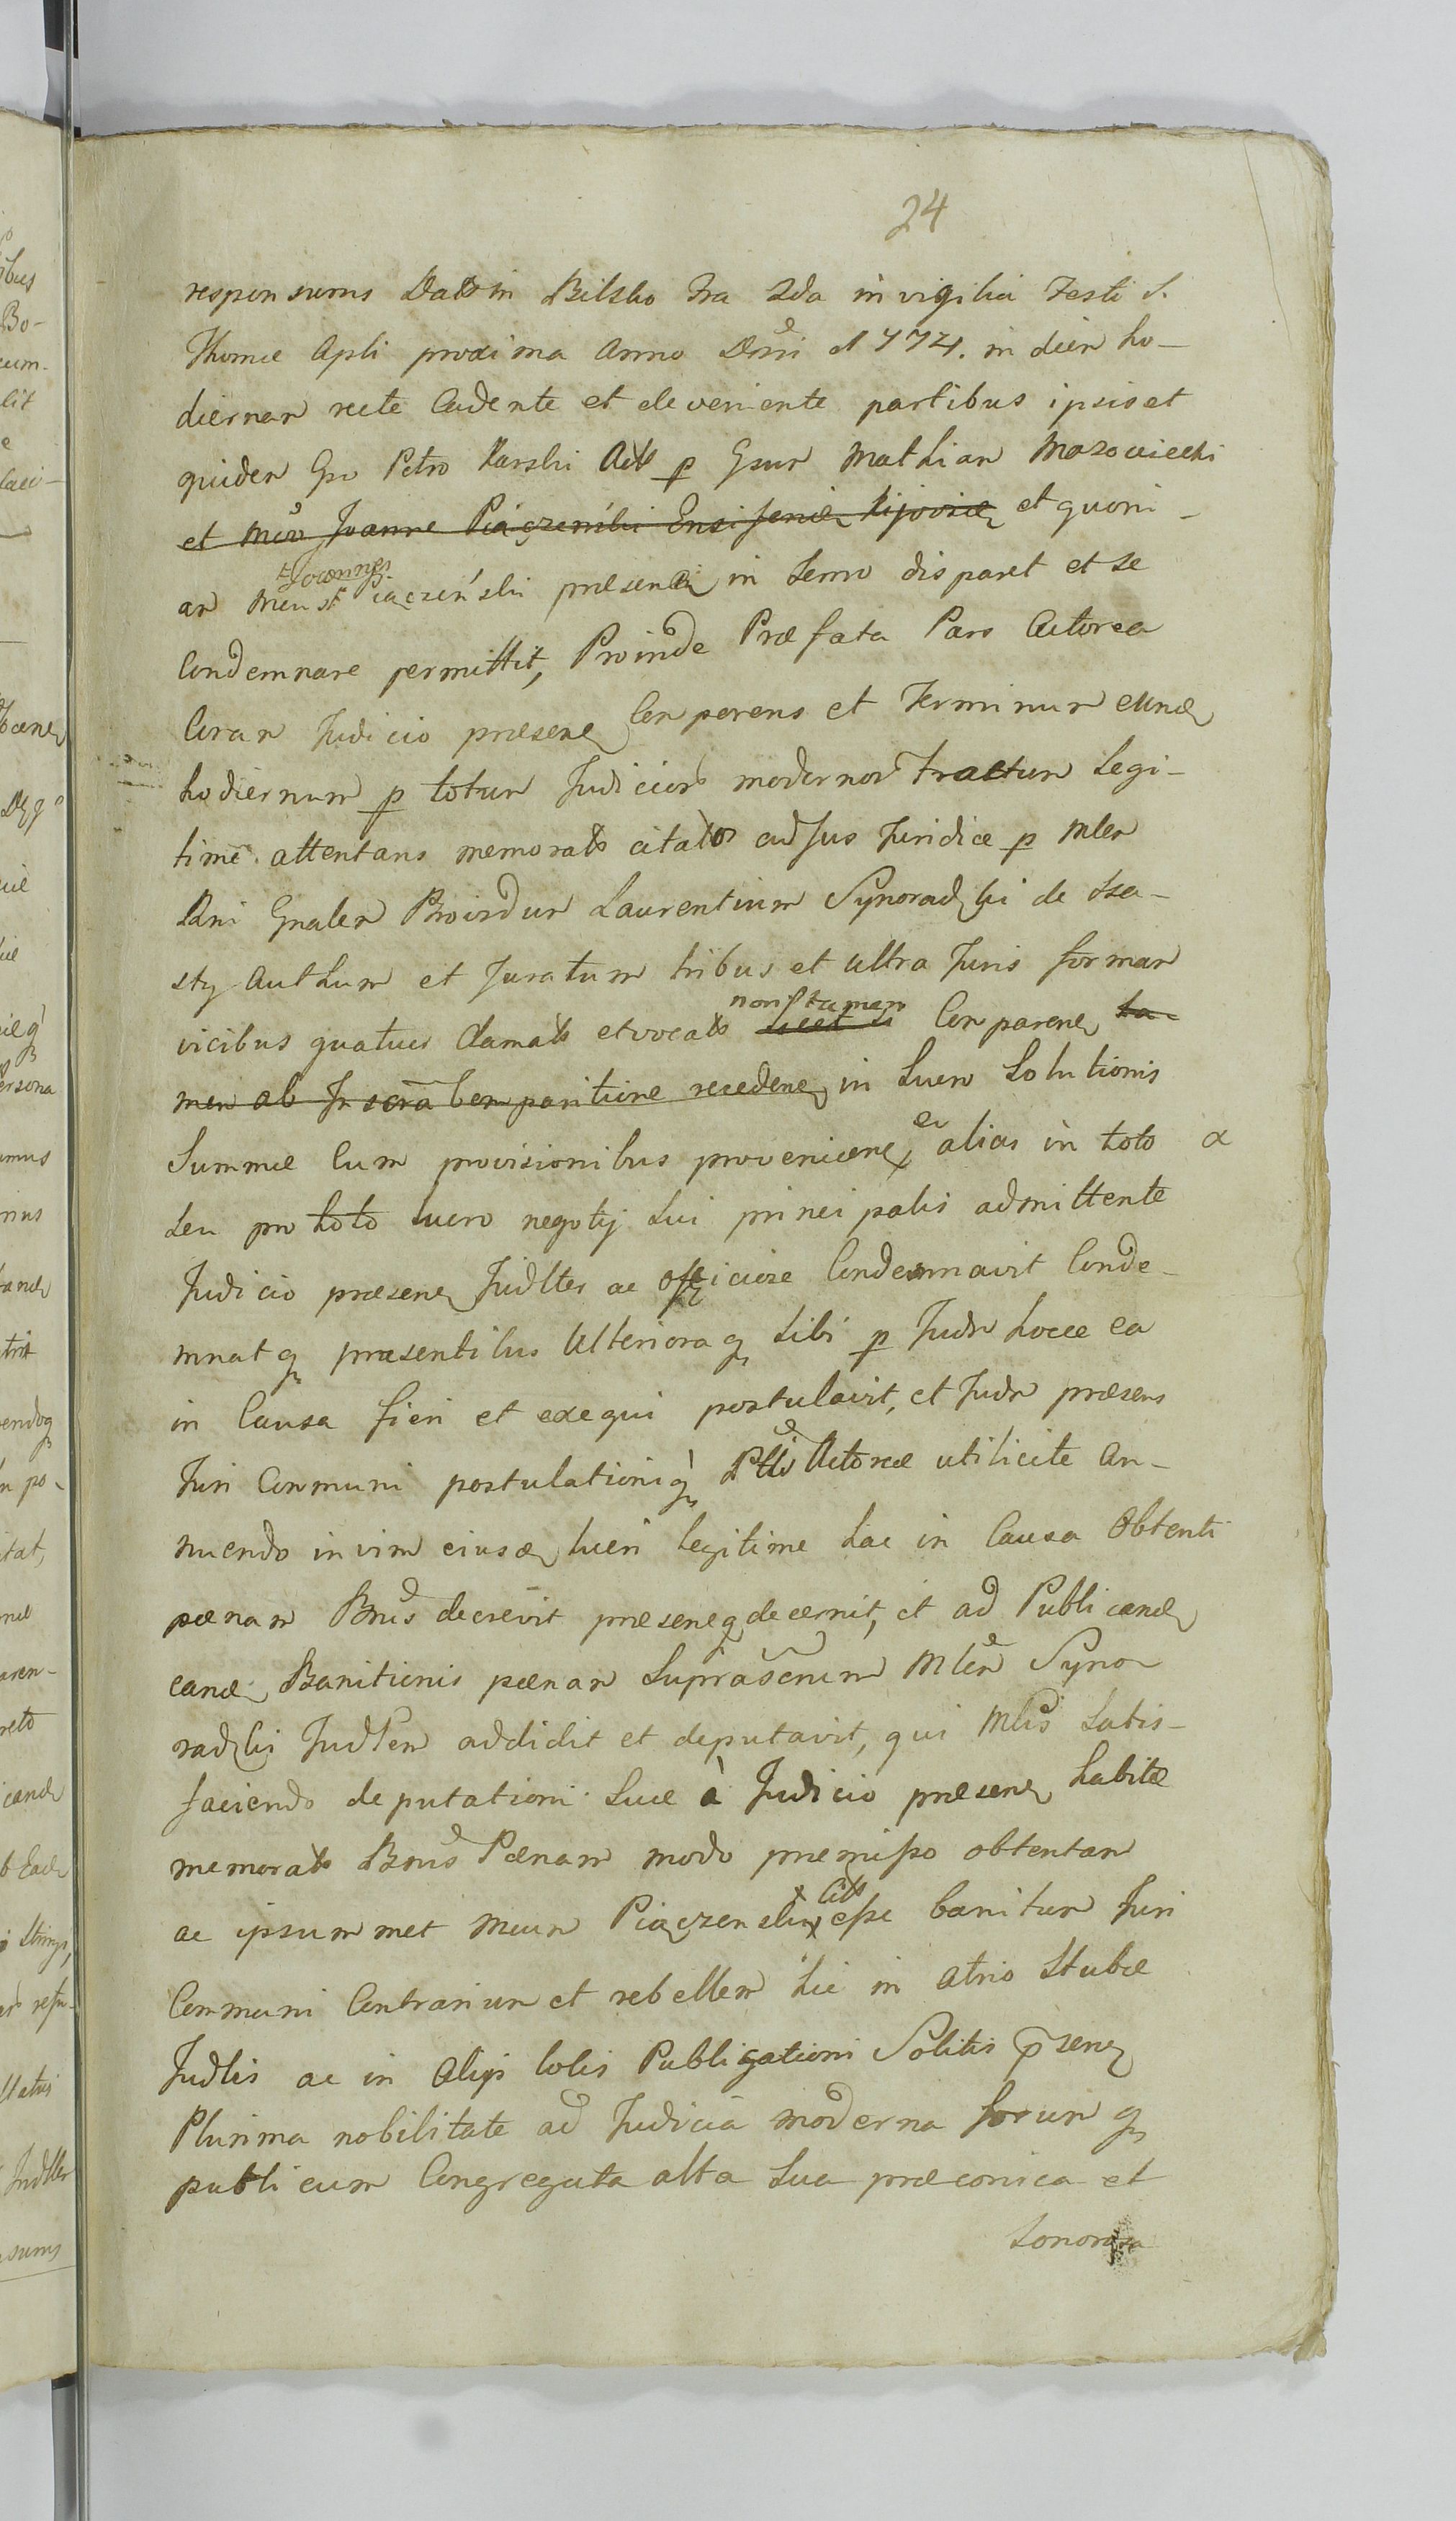 24
responsurus Dat in Bilsko fra 2da in vigilia Festi S.
Thomæ Apli proxima Anno Dñi 1774. in diem ho-
diernam recte Cadente et deveniente partibus ipsis et
quidem Gso Petro Karski Act p Gsum Mathiam Mazowiecki
et Mco Joanne Piączeński Ensifenæ Kijoviæ et quoni-
Joannes
am Mcus Piaczeński præsenti in termo disparet et se
Condemnare permittit, Proinde Præfata Pars Actorea
Coram Judicio præsene Comparens et Terminum eund
hodiernum p totum Judiciors modernor tractum legi-
time attentans memorat citator ad Jus Juridice p Mlem
Rni Gnalem Proirdum Laurentium Synoradzki de Sza-
sty Authum et Juratum tribus et ultra Juris formam
non tamen
vicibus quatuor Clamat et vocat licet Comparene ta-
men ab Jnscra Comparitione recedene in Lucro Solutionis
Summæ Cum provisionibus proveniene ex alias in toto
seu pro toto lucro negotij sui principalis admittente
Judicio præsene Judlter ac officiose Condemnavit Conde-
mnatq præsentibus Ulterioraq sibi p Judm hocce ea
in Causa fieri et exequi postulavit, et Judm præsens
Juri Communi postulationiq Ptis Actoreæ utilicite An-
nuendo in vim eiusd lucri legitime hac in Causa Obtenti
pænam Bnis decrevit præseneq decernit, et ad Publicand
eand Banitionis pænam Suprascrum Mlem Syno-
radzki Judlem addidit et deputavit, qui Mlis Satis-
faciendo deputationi Suæ à Judicio præsene habitæ
memorat Bnis Pænam modo præmisso obtentam
Cit
ac ipsummet Mcum Piączenski esse banitum Juri
Communi Contrarium et rebellem hic in atrio Stubæ
Judlis ac in alijs lolis Publigationi Solitis psene
Plurima nobilitate ad Judicia moderna forumq
publicum Congregata alta Sua præconica et
Sonorosa